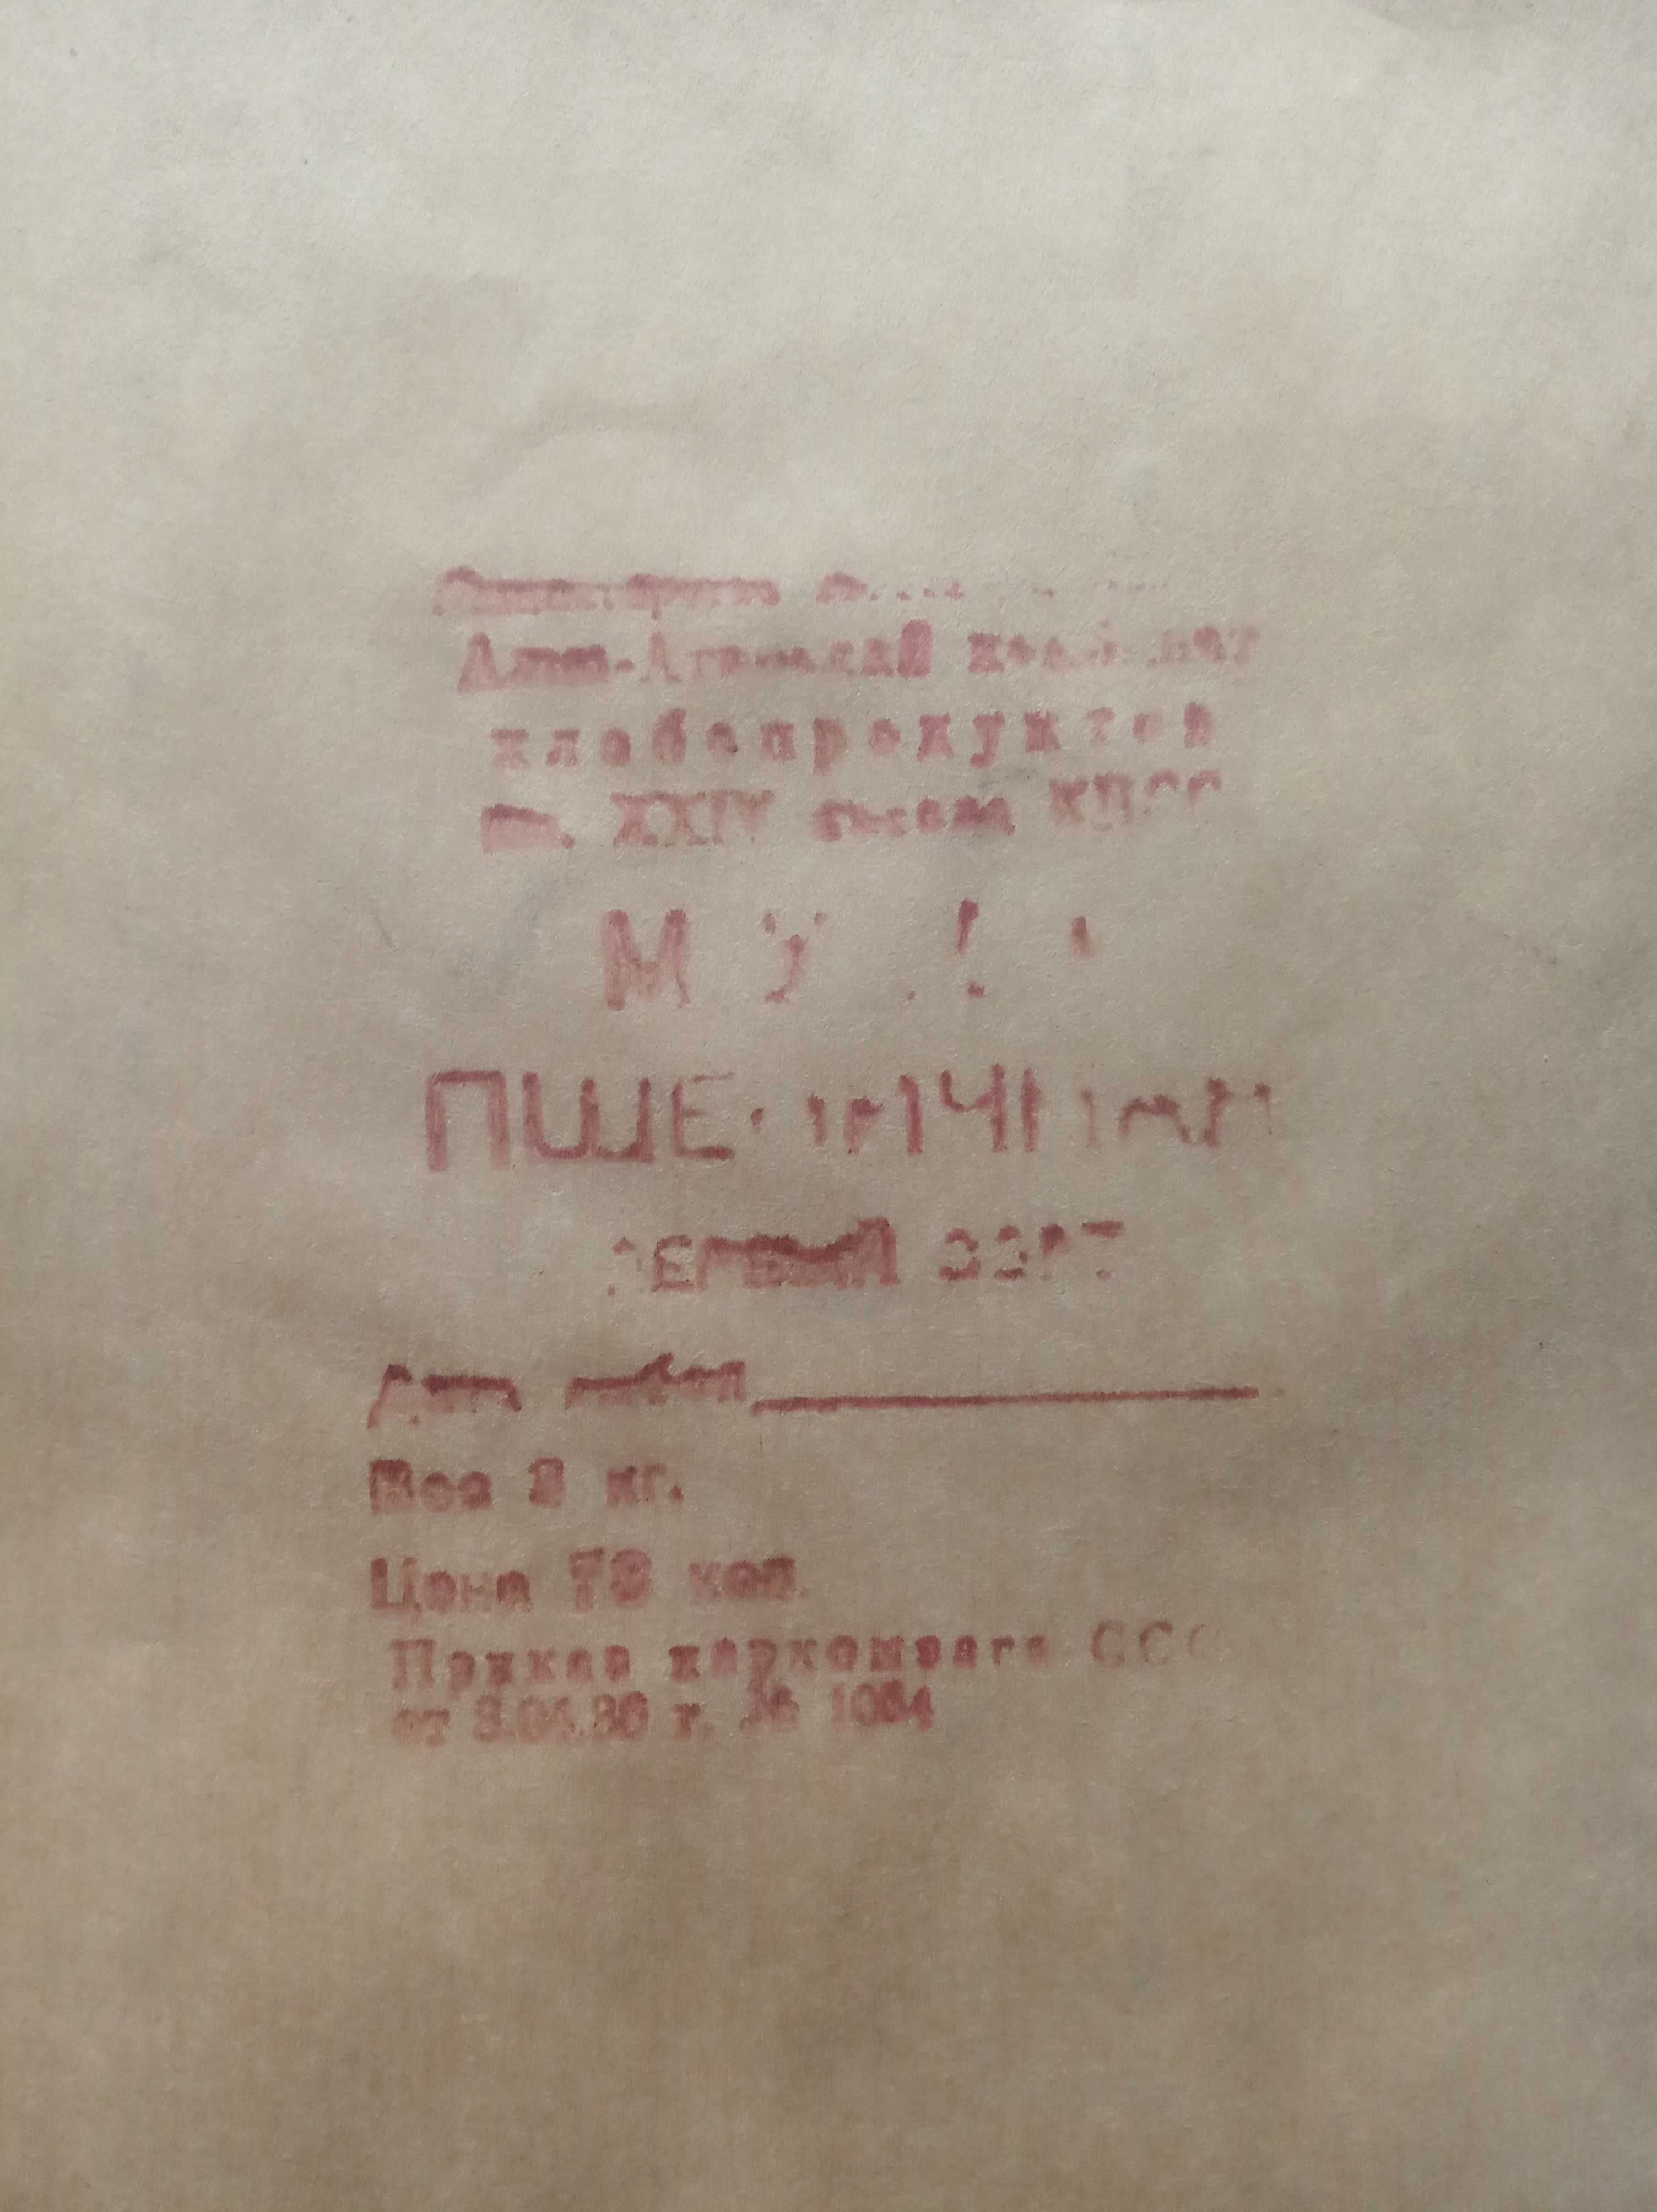 Алма-Атинский комбинат
хлебопродуктов
им. XXIV съезда КПСС
МУКА
ПШЕНИЧНАЯ
ПЕРВЫЙ СОРТ
Дата выбоя
Вес кг.
Цена коп.
Приказ наркомзага СССР
от г. № 1084